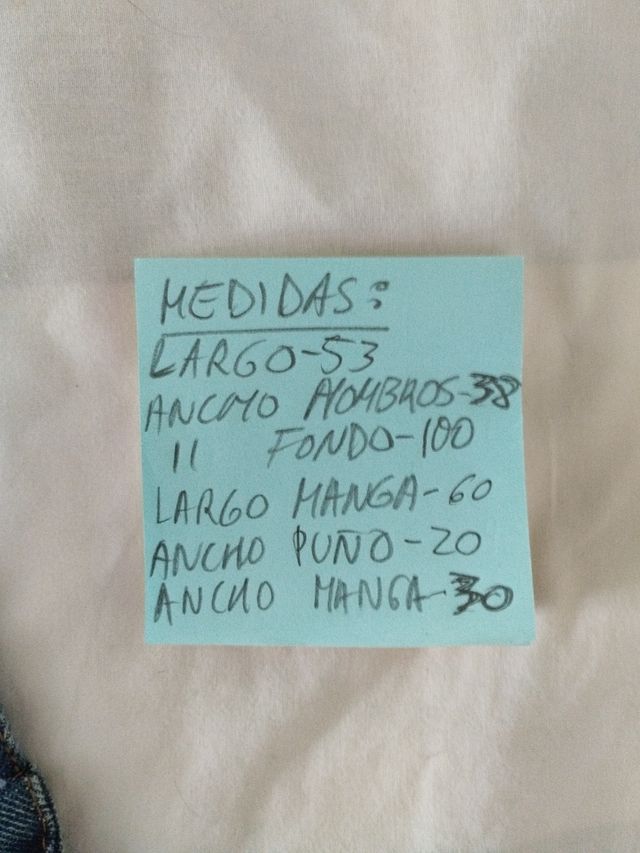 MEDIDAS:
LARGO-53
ANCHO HOMBROS-38
11 FONDO-100
LARGO MANGA-60
ANCHO PUÑO-20
ANCHO MANGA-30